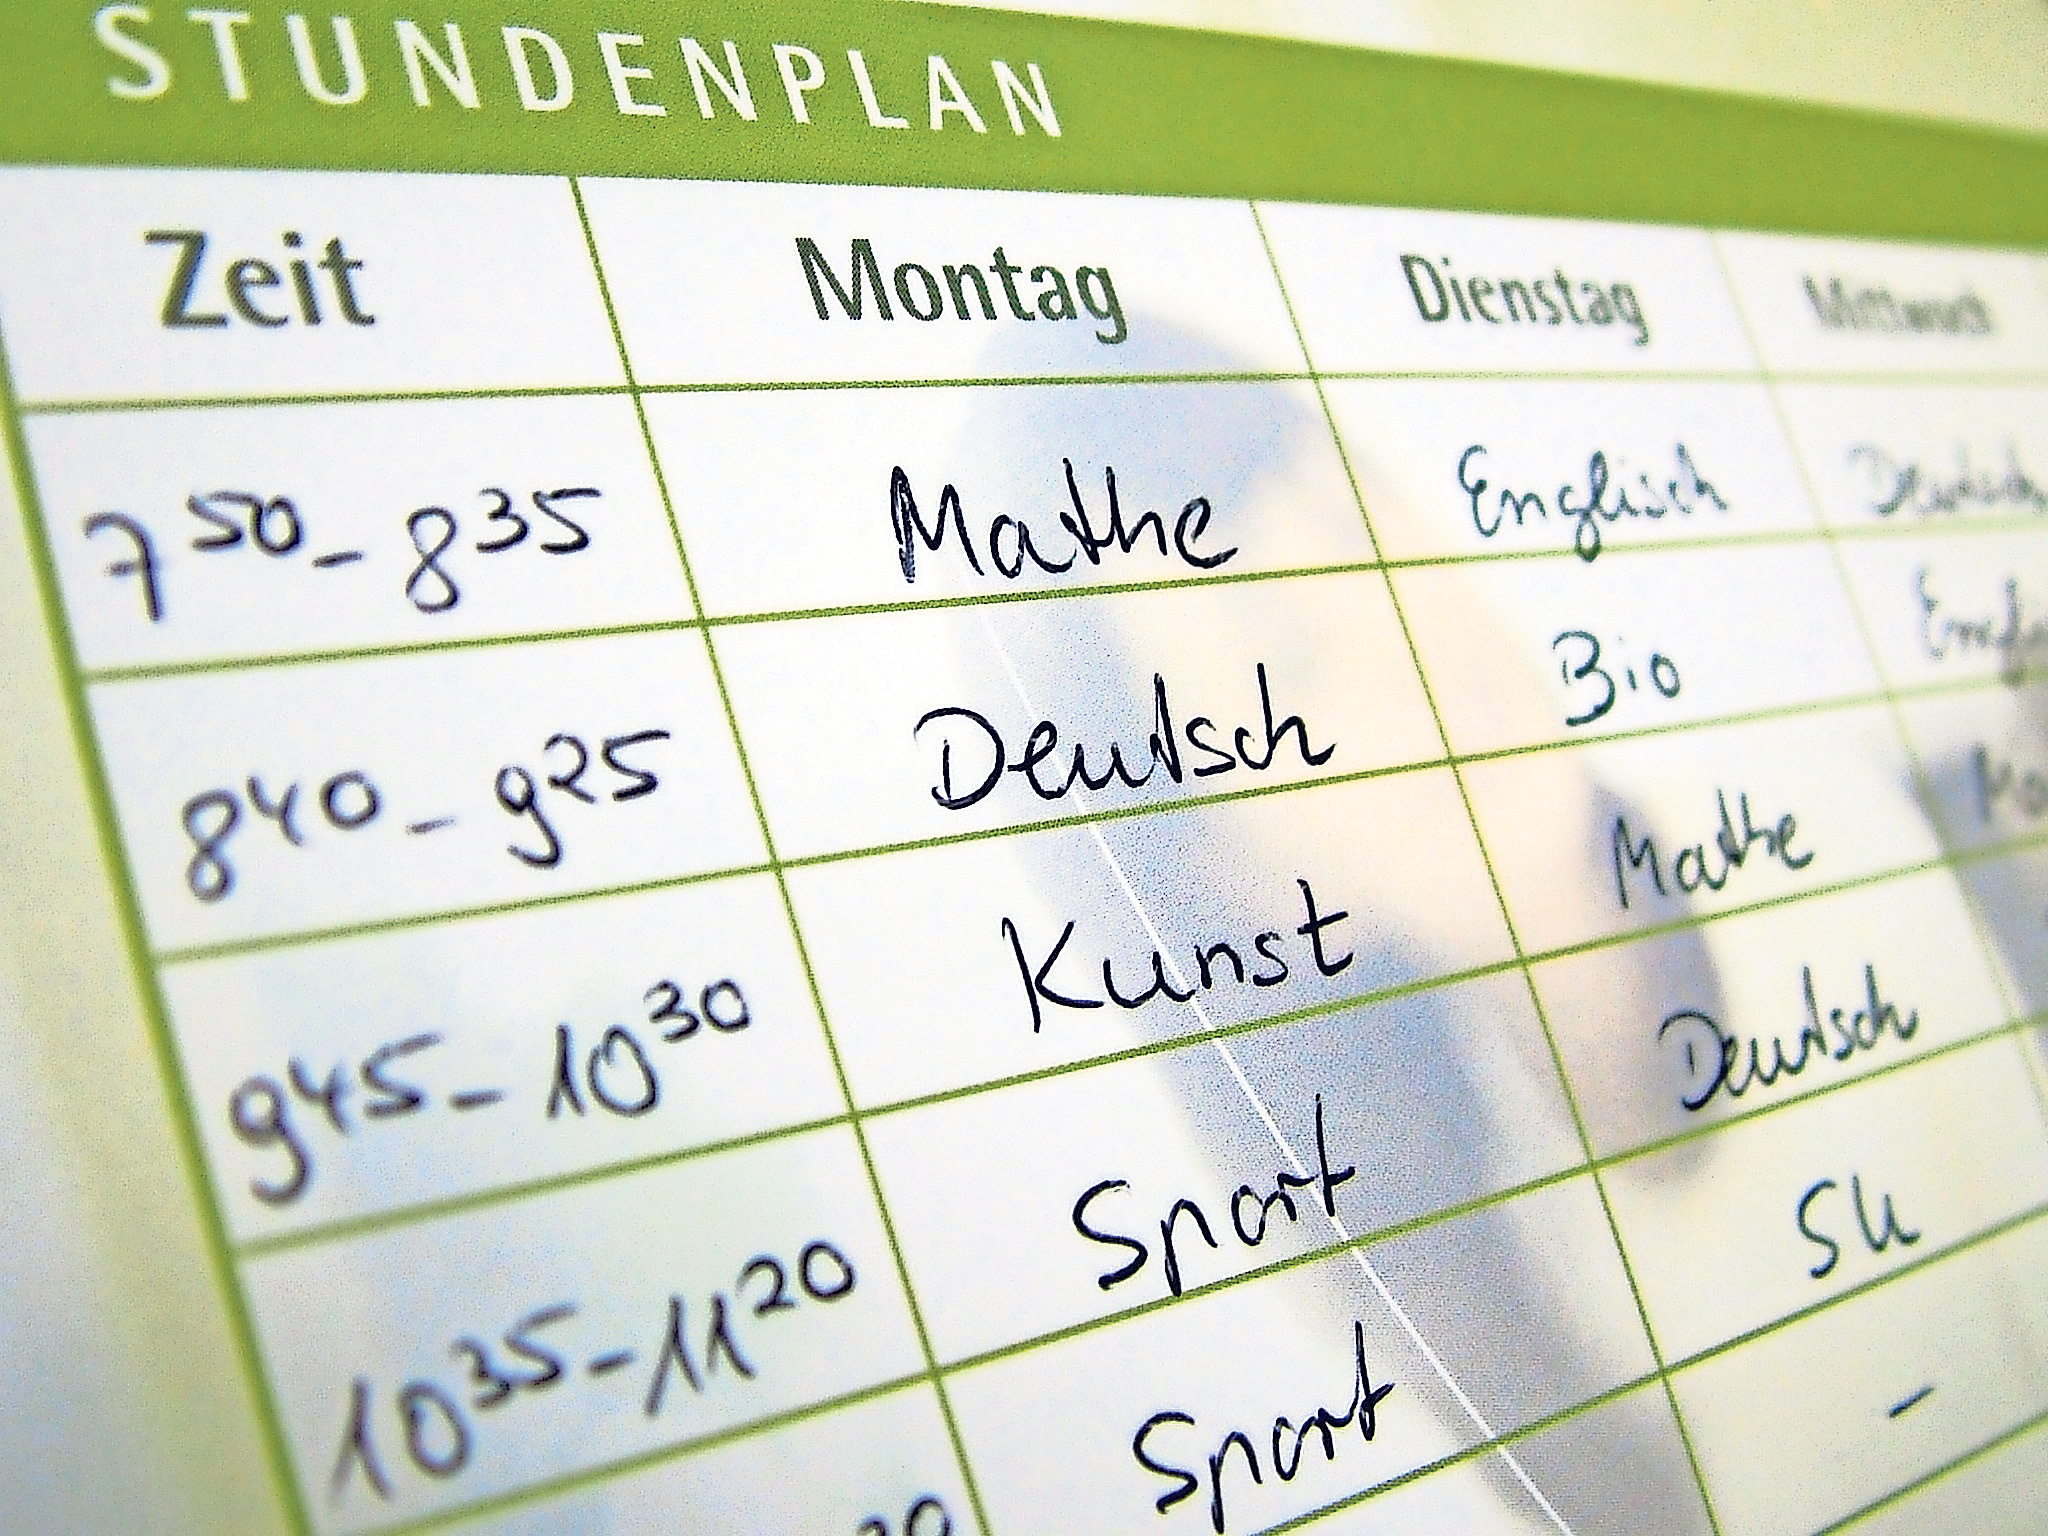 STUNDENPLAN
Zeit Montag Dienstag Mittwoch
7 50 - 8 35 Mathe Englisch Deutsch
8 40 - 9 25 Deutsch Bio
9 45 - 10 30 Kunst Mathe
10 35 - 11 20 Sport Deutsch
Sport SU
-